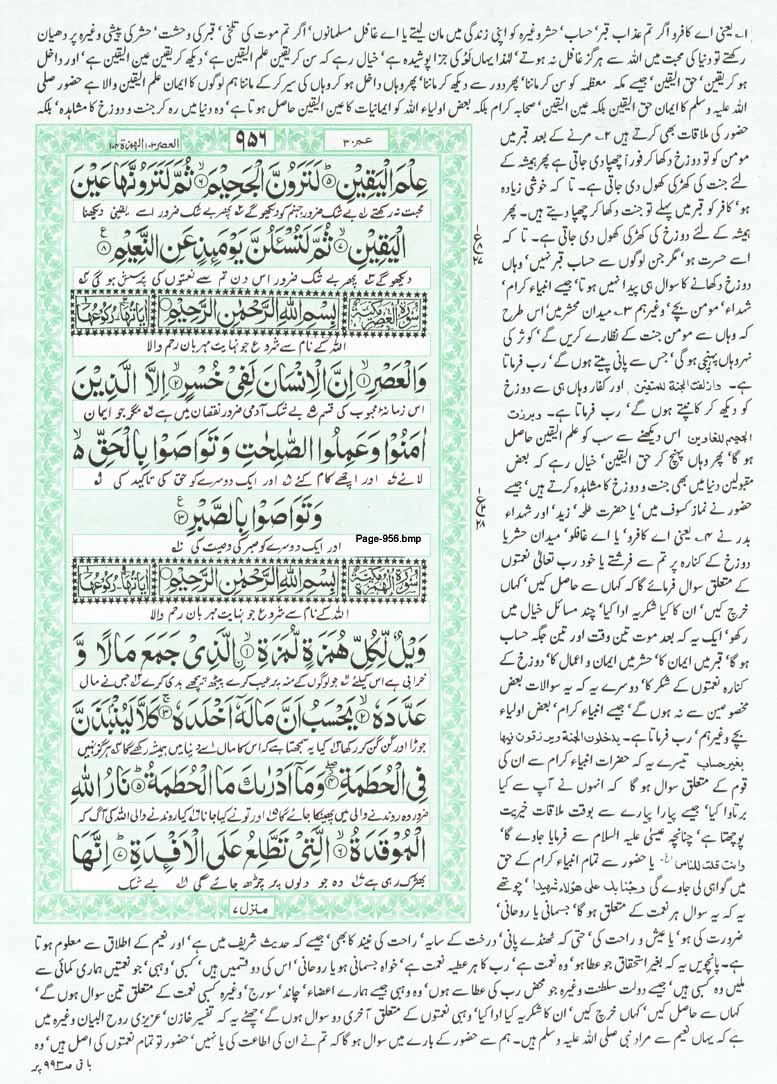 ۱۔ یعنی اے کافرو اگر تم عذاب قبر' حساب' حشر وغیرہ کو اپنی زندگی میں مان لیتے یا اے غافل مسلمانوں' اگر تم موت کی تلخی' قبر کی وحشت' حشر کی پیشی وغیرہ پر دھیان
رکھتے تو دنیا کی محبت میں اللہ سے ہرگز غافل نہ ہوتے' لہٰذا یہاں لَوْ کی جزا پوشیدہ ہے' خیال رہے کہ سن کر یقین علم الیقین ہے' دیکھ کر یقین عین الیقین ہے' اور داخل
ہو کر یقین' حق الیقین' جیسے مکہ معظمہ کو سن کر ماننا' پھر دور سے دیکھ کر ماننا' پھر وہاں داخل ہو کر وہاں کی سیر کر کے ماننا ہم لوگوں کا ایمان علم الیقین والا ہے حضور صلی
اللہ علیہ وسلم کا ایمان حق الیقین بلکہ عین الیقین' صحابہ کرام بلکہ بعض اولیاء اللہ کو ایمانیات کا عین الیقین حاصل ہوتا ہے' وہ دنیا میں رہ کر جنت و دوزخ کا مشاہدہ' بلکہ
حضور کی ملاقات بھی کرتے ہیں ۲۔ مرنے کے بعد قبر میں
مومن کو تو دوزخ دکھا کر فوراً چھپا دی جاتی ہے پھر ہمیشہ کے
لئے جنت کی کھڑکی کھول دی جاتی ہے۔ تا کہ خوشی زیادہ
ہو' کافر کو قبر میں پہلے تو جنت دکھا کر چھپا دیتے ہیں۔ پھر
ہمیشہ کے لئے دوزخ کی کھڑکی کھول دی جاتی ہے۔ تا کہ
اسے حسرت ہو' مگر جن لوگوں سے حساب قبر نہیں' وہاں
دوزخ دکھانے کا سوال ہی پیدا نہیں ہوتا' جیسے انبیاء کرام'
شہداء' مومن بچے' وغیرہم ۳۔ میدان محشر میں' اس طرح
کہ وہاں سے مومن جنت کے نظارے کریں گے' کوثر کی
نہر وہاں پہنچی ہو گی' جس سے پانی پیتے ہوں گے' رب فرماتا
ہے۔ وازلفت الجنة للمتقین اور کفار وہاں ہی سے دوزخ
کو دیکھ کر کانپتے ہوں گے' رب فرماتا ہے۔ وبرزت
الجحیم للغاوین اس دیکھنے سے سب کو علم الیقین حاصل
ہو گا' پھر وہاں پہنچ کر حق الیقین' خیال رہے کہ بعض
مقبولین دنیا میں بھی جنت و دوزخ کا مشاہدہ کرتے ہیں' جیسے
حضور نے نماز کسوف میں' یا حضرت طلحہ' زید' اور شہداء
بدر نے ۴۔ یعنی اے کافرو' یا اے غافلو' میدان حشر یا
دوزخ کے کنارہ پر تم سے فرشتے یا خود رب تعالیٰ نعمتوں
کے متعلق سوال فرمائے گا کہ کہاں سے حاصل کیں' کہاں
خرچ کیں' ان کا کیا شکریہ ادا کیا' چند مسائل خیال میں
رکھو' ایک یہ کہ بعد موت تین وقت اور تین جگہ حساب
ہو گا' قبر میں ایمان کا' حشر میں ایمان و اعمال کا' دوزخ کے
کنارہ نعمتوں کے شکر کا' دوسرے یہ کہ یہ سوالات بعض
مخصوصین سے نہ ہوں گے' جیسے انبیاء کرام' بعض اولیاء
بچے وغیرہم' رب فرماتا ہے۔ یدخلون الجنة ویرزقون فیها
بغیر حساب تیسرے یہ کہ حضرات انبیاء کرام سے ان کی
قوم کے متعلق سوال ہو گا کہ انہوں نے آپ سے کیا
برتاوا کیا' جیسے پیارا پیارے سے بوقت ملاقات خیریت
پوچھتا ہے' چنانچہ عیسیٰ علیہ السلام سے فرمایا جاوے گا'
ءانت قلت للناس الخ۔ یا حضور سے تمام انبیاء کرام کے حق
میں گواہی لی جاوے گی وجئنا بک علی هؤلاء شهیدا' چوتھے
یہ کہ یہ سوال ہر نعمت کے متعلق ہو گا' جسمانی یا روحانی'
ضرورت کی ہو' یا عیش و راحت کی' حتیٰ کہ ٹھنڈے پانی' درخت کے سایہ' راحت کی نیند کا بھی' جیسے کہ حدیث شریف میں ہے' اور نعیم کے اطلاق سے معلوم ہوتا
ہے۔ پانچویں یہ کہ بغیر استحقاق جو عطا ہو' وہ نعمت ہے' رب کا ہر عطیہ نعمت ہے' خواہ جسمانی ہو یا روحانی' اس کی دو قسمیں ہیں' کسبی' وہبی' جو نعمتیں ہماری کمائی سے
ملیں وہ کسبی ہیں' جیسے دولت سلطنت وغیرہ جو محض رب کی عطا سے ہوں' وہ وہبی جیسے ہمارے اعضاء' چاند' سورج' وغیرہ کسبی نعمت کے متعلق تین سوال ہوں گے'
کہاں سے حاصل کیں' کہاں خرچ کیں' ان کا شکریہ کیا ادا کیا' وہبی نعمتوں کے متعلق آخری دو سوال ہوں گے' چھٹے یہ کہ تفسیر خازن' عزیزی روح البیان وغیرہ میں
ہے کہ یہاں نعیم سے مراد نبی صلی اللہ علیہ وسلم ہیں۔ ہم سے حضور کے بارے میں سوال ہو گا کہ تم نے ان کی اطاعت کی یا نہیں' حضور تو تمام نعمتوں کی اصل ہیں' وہ
باقی صہ ۹۹۳ پر
عم ۳۰
۹۵۶
العصر ۱۰۳ الهمزة ۱۰۴
عِلْمَ الْيَقِيْنِ ۵ لَتَرَوُنَّ الْجَحِيْمَ ۶ ثُمَّ لَتَرَوُنَّهَا عَيْنَ
محبت نہ رکھتے بے شک ضرور جہنم کو دیکھو گے پھر بے شک ضرور اسے یقینی دیکھنا
الْيَقِيْنِ ۷ ثُمَّ لَتُسْـَٔلُنَّ يَوْمَىِٕذٍ عَنِ النَّعِيْمِ ۸
دیکھو گے پھر بے شک ضرور اس دن تم سے نعمتوں کی پرسش ہو گی
سورة العصر مكية
بِسْمِ اللّٰهِ الرَّحْمٰنِ الرَّحِيْمِ
اللہ کے نام سے شروع جو نہایت مہربان رحم والا
وَالْعَصْرِ ۱ اِنَّ الْاِنْسَانَ لَفِيْ خُسْرٍ ۲ اِلَّا الَّذِيْنَ
اس زمانۂ محبوب کی قسم بے شک آدمی ضرور نقصان میں ہے مگر جو ایمان
اٰمَنُوْا وَعَمِلُوا الصّٰلِحٰتِ وَتَوَاصَوْا بِالْحَقِّ
لائے اور اچھے کام کئے اور ایک دوسرے کو حق کی تاکید کی
وَتَوَاصَوْا بِالصَّبْرِ ۳
Page-956.bmp
اور ایک دوسرے کو صبر کی وصیت کی
سورة الهمزة مكية
بِسْمِ اللّٰهِ الرَّحْمٰنِ الرَّحِيْمِ
اللہ کے نام سے شروع جو نہایت مہربان رحم والا
وَيْلٌ لِّكُلِّ هُمَزَةٍ لُّمَزَةِ ۱ ۨالَّذِيْ جَمَعَ مَالًا وَّ
خرابی ہے اس کیلئے جو لوگوں کے منہ پر عیب کرے پیٹھ پیچھے بدی کرے جس نے مال
عَدَّدَهٗ ۲ يَحْسَبُ اَنَّ مَالَهٗۤ اَخْلَدَهٗ ۳ كَلَّا لَيُنْۢبَذَنَّ
جوڑا اور گن گن کر رکھا کیا یہ سمجھتا ہے کہ اس کا مال اسے دنیا میں ہمیشہ رکھے گا ہرگز نہیں
فِي الْحُطَمَةِ ۴ وَمَاۤ اَدْرٰىكَ مَا الْحُطَمَةُ ۵ نَارُ اللّٰهِ
ضرور وہ روندنے والی میں پھینکا جائے گا اور تو نے کیا جانا کیا روندنے والی اللہ کی آگ کہ
الْمُوْقَدَةُ ۶ الَّتِيْ تَطَّلِعُ عَلَى الْاَفْـِٕدَةِ ۷ اِنَّهَا
بھڑک رہی ہے وہ جو دلوں پر چڑھ جائے گی بے شک
منزل ۷